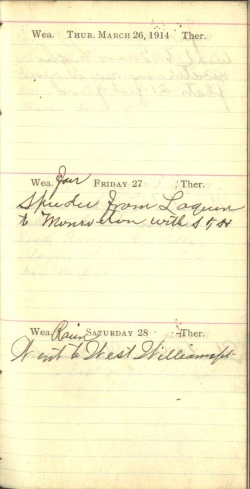 Wea. THUR. MARCH 26, 1914 Ther.
Wea. Fair FRIDAY 27 Ther.
Speeder from Laquin
to Monroeton with S & H
Wea. Rain SATURDAY 28 Ther.
Went to West Williamspt